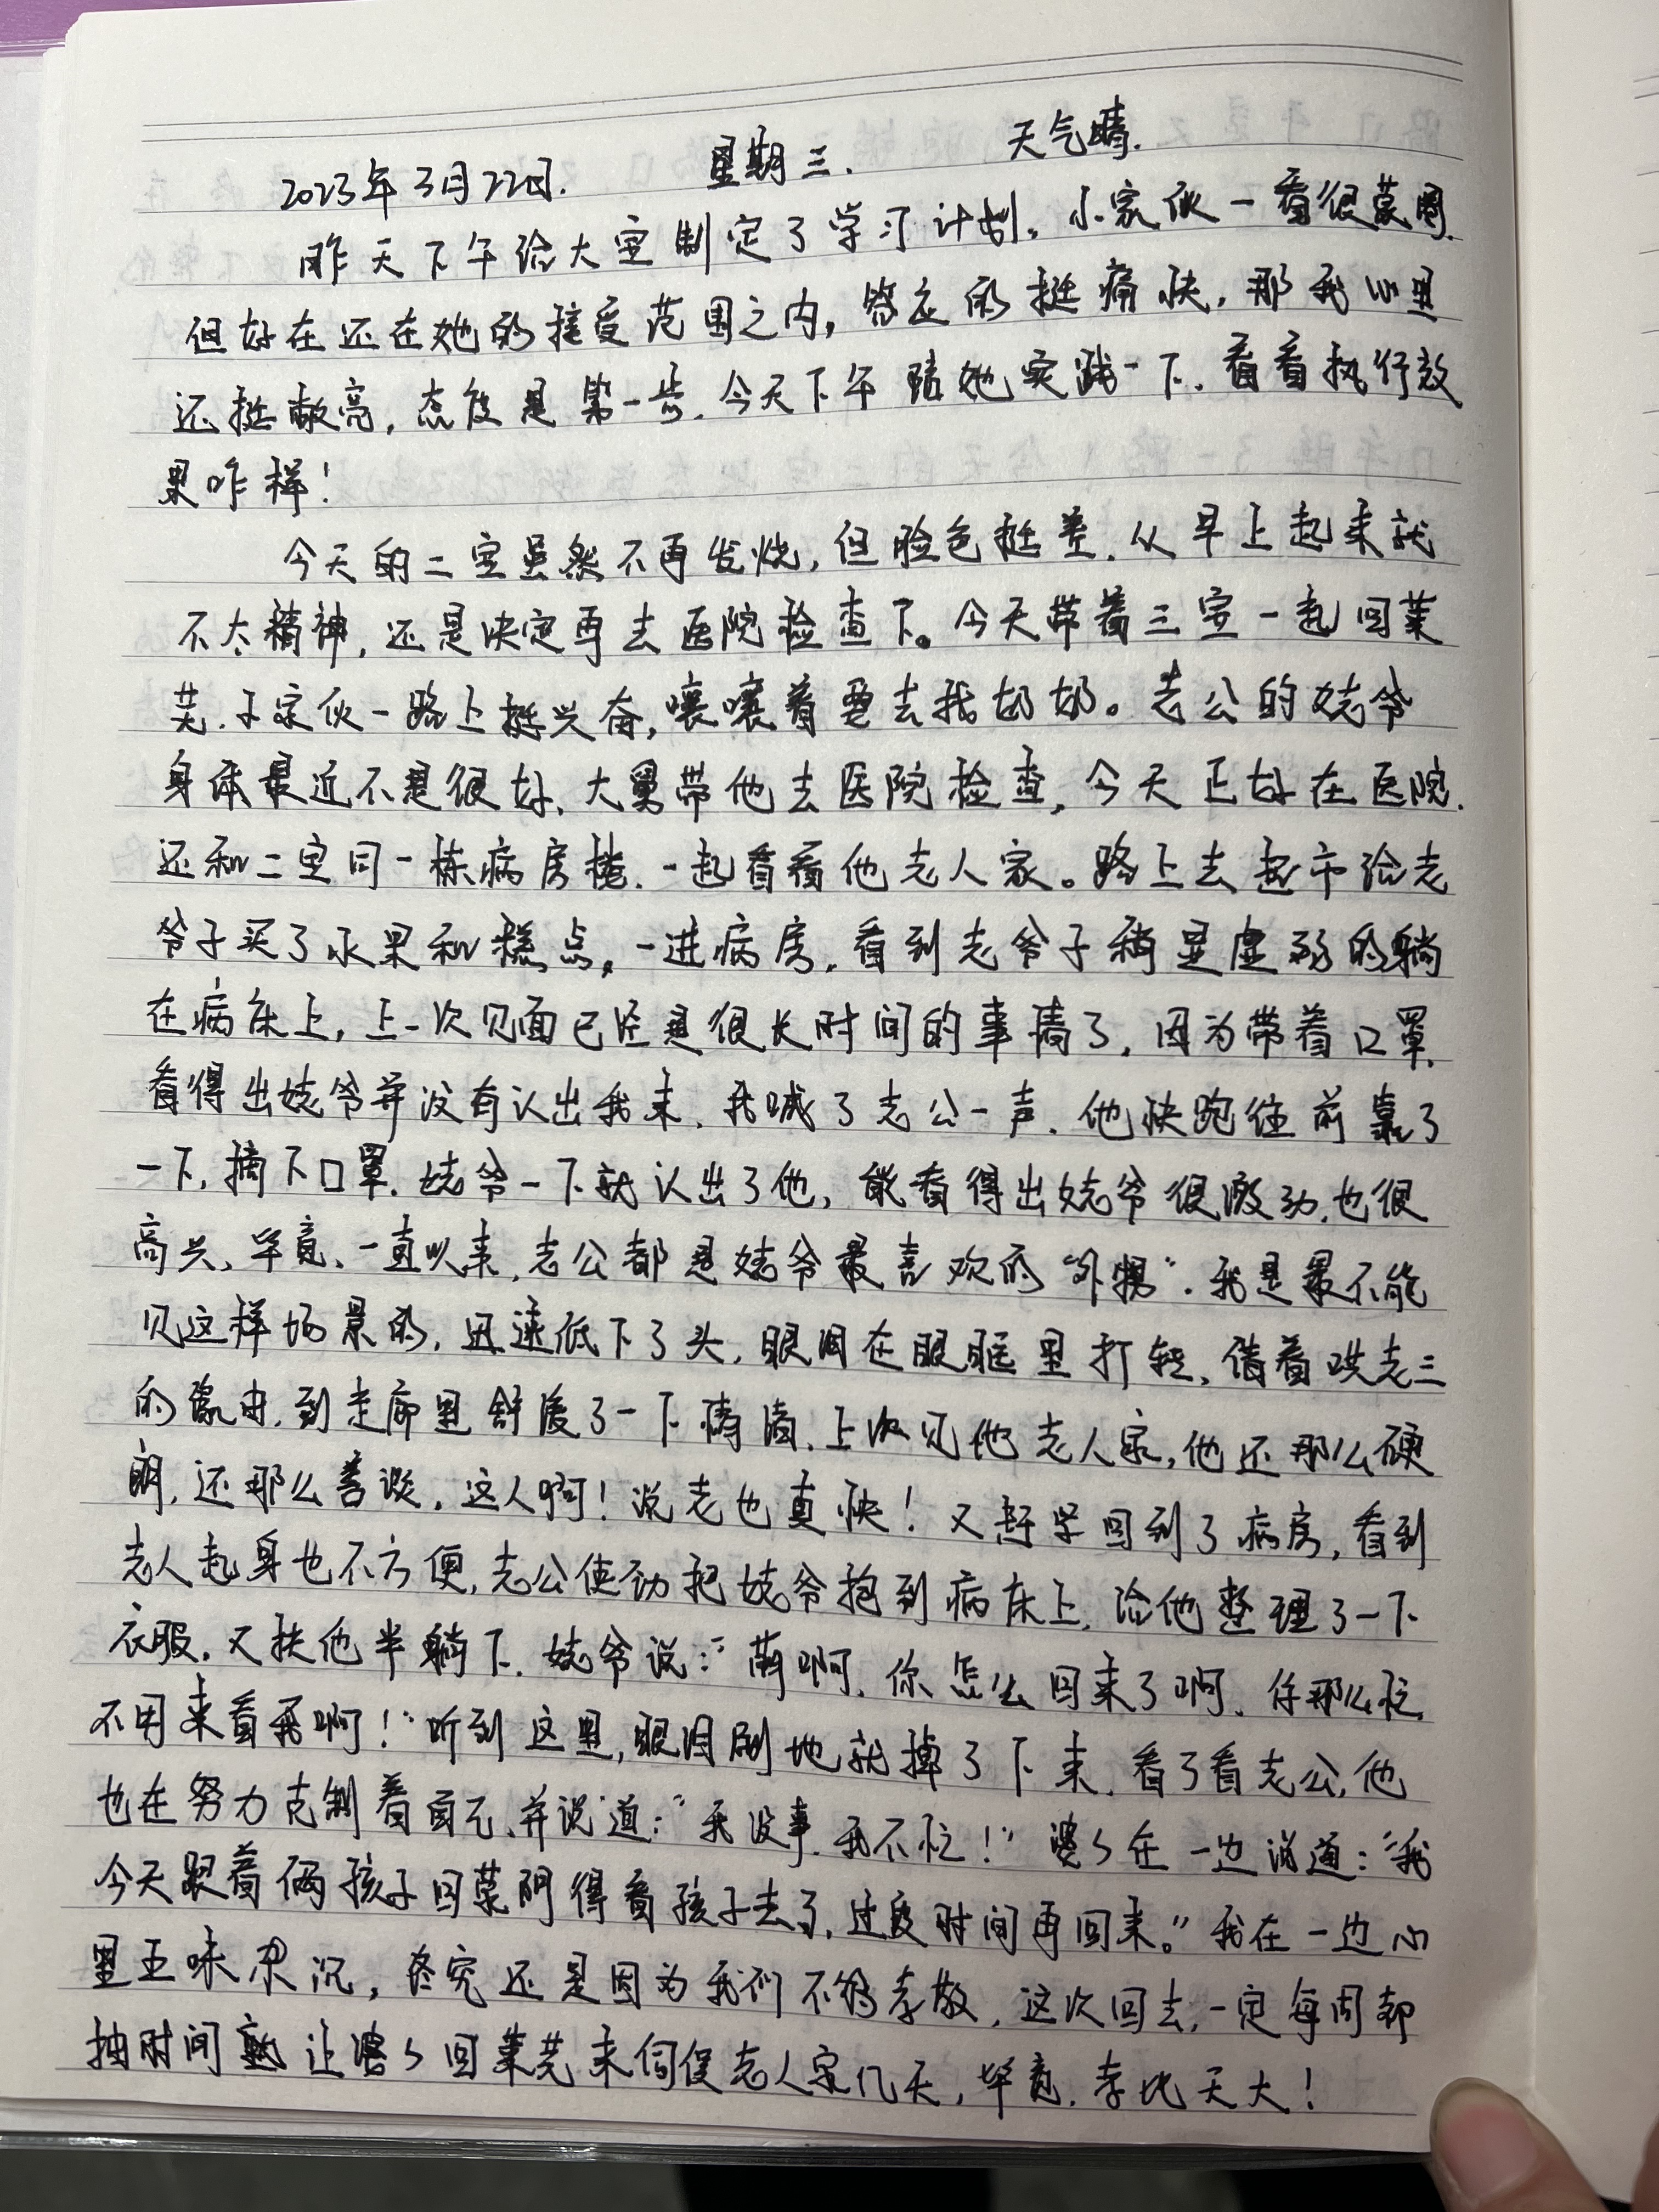 2023年3月22日. 星期三. 天气晴.
昨天下午给大宝制定了学习计划。小家伙一看很蒙圈.
但好在还在她的接受范围之内，答应的挺痛快，那我心里
还挺敞亮，态度是第一步.今天下午陪她实践一下.看看执行效
果咋样！
今天的二宝虽然不再发烧，但脸色挺差.从早上起来就
不太精神，还是决定再去医院检查下。今天带着三宝一起回莱
芜.小家伙一路上挺兴奋，嚷嚷着要去找奶奶。老公的姥爷
身体最近不是很好、大舅带他去医院检查，今天正好在医院.
还和二宝同一栋病房楼.一起看看他老人家。路上去超市给老
爷子买了水果和糕点，一进病房，看到老爷子稍显虚弱的躺
在病床上，上一次见面已经是很长时间的事情了，因为带着口罩.
看得出姥爷并没有认出我来、我喊了老公一声.他快跑往前靠了
一下，摘下口罩.姥爷一下就认出了他，能看得出姥爷很激动.也很
高兴、毕竟、一直以来，老公都是姥爷最喜欢的“外甥”.我是最不能
见这样场景的，迅速低下了头，眼泪在眼眶里打转、借着哄老三
的缘由.到走廊里舒缓了一下情绪.上次见他老人家，他还那么硬
朗，还那么善谈.这人啊！说老也真快！又赶紧回到了病房，看到
老人起身也不方便，老公使劲把姥爷抱到病床上，给他整理了一下
衣服.又扶他半躺下.姥爷说：“萌啊.你怎么回来了啊、你那么忙，
不用来看我啊！”听到这里，眼泪刷地就掉了下来.看了看老公，他
也在努力克制着自己、并说道：“我没事.我不忙！”婆婆在一边说道：“我
今天跟着俩孩子回蒙阴得看孩子去了，过段时间再回来。”我在一边心
里五味杂沉，终究还是因为我们不够孝敬，这次回去，一定每周都
抽时间 让婆婆回莱芜来伺候老人家几天，毕竟.孝比天大！